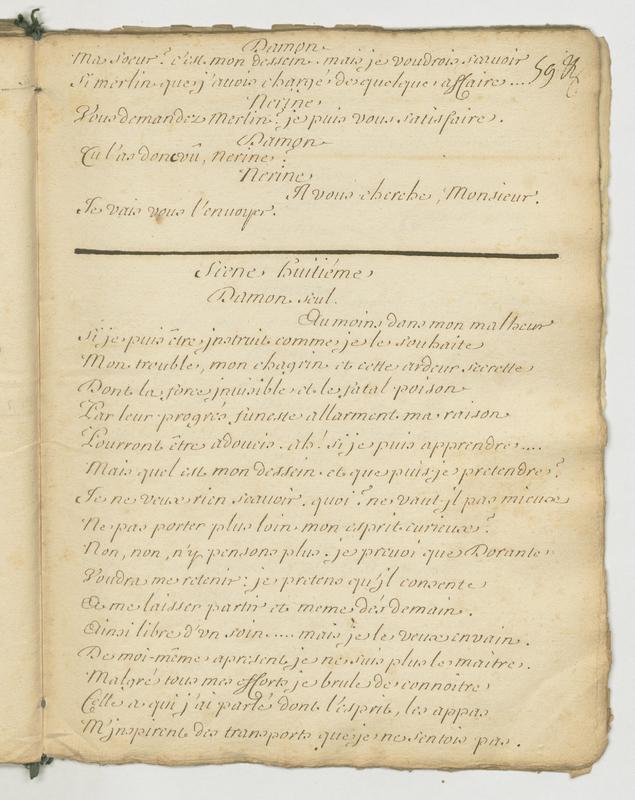 Damon
Ma soeur? c'est mon dessein. mais je voudrois scavoir
Si merlin que j'avois chargé de quelque affaire....
59
Nerine
Vous demandez Merlin? je puis vous satisfaire.
Damon
Tu l'as donc vû, nerine?
Nerine
Il vous cherche, Monsieur.
Je vais vous l'envoyer.
Scene huitiéme
Damon seul.
Au moins dans mon malheur
Si je puis être jnstruit comme je le souhaite
Mon trouble, mon chagrin et cette ardeur secrette
Dont la force jnvisible et le fatal poison
Par leur progrés funeste allarment ma raison
Pourront être adoucis. ah! si je puis apprendre....
Mais quel est mon dessein et que puis-je pretendre?
Je ne veux rien scavoir. quoi? ne vaut-jl pas mieux
Ne pas porter plus loin mon esprit curieux?
Non, non, n'y pensons plus. je prevoi que Dorante
Voudra me retenir: je pretens qu'jl consente
A me laisser partir et meme dés demain.
Ainsi libre d'vn soin.... mais je le veux en vain.
De moi-même apresent je ne suis plus le maitre.
Malgré tous mes efforts je brule de connoitre
Celle a qui j'ai parlé dont l'esprit, les appas
M'jnspirent des transports que je ne sentois pas.